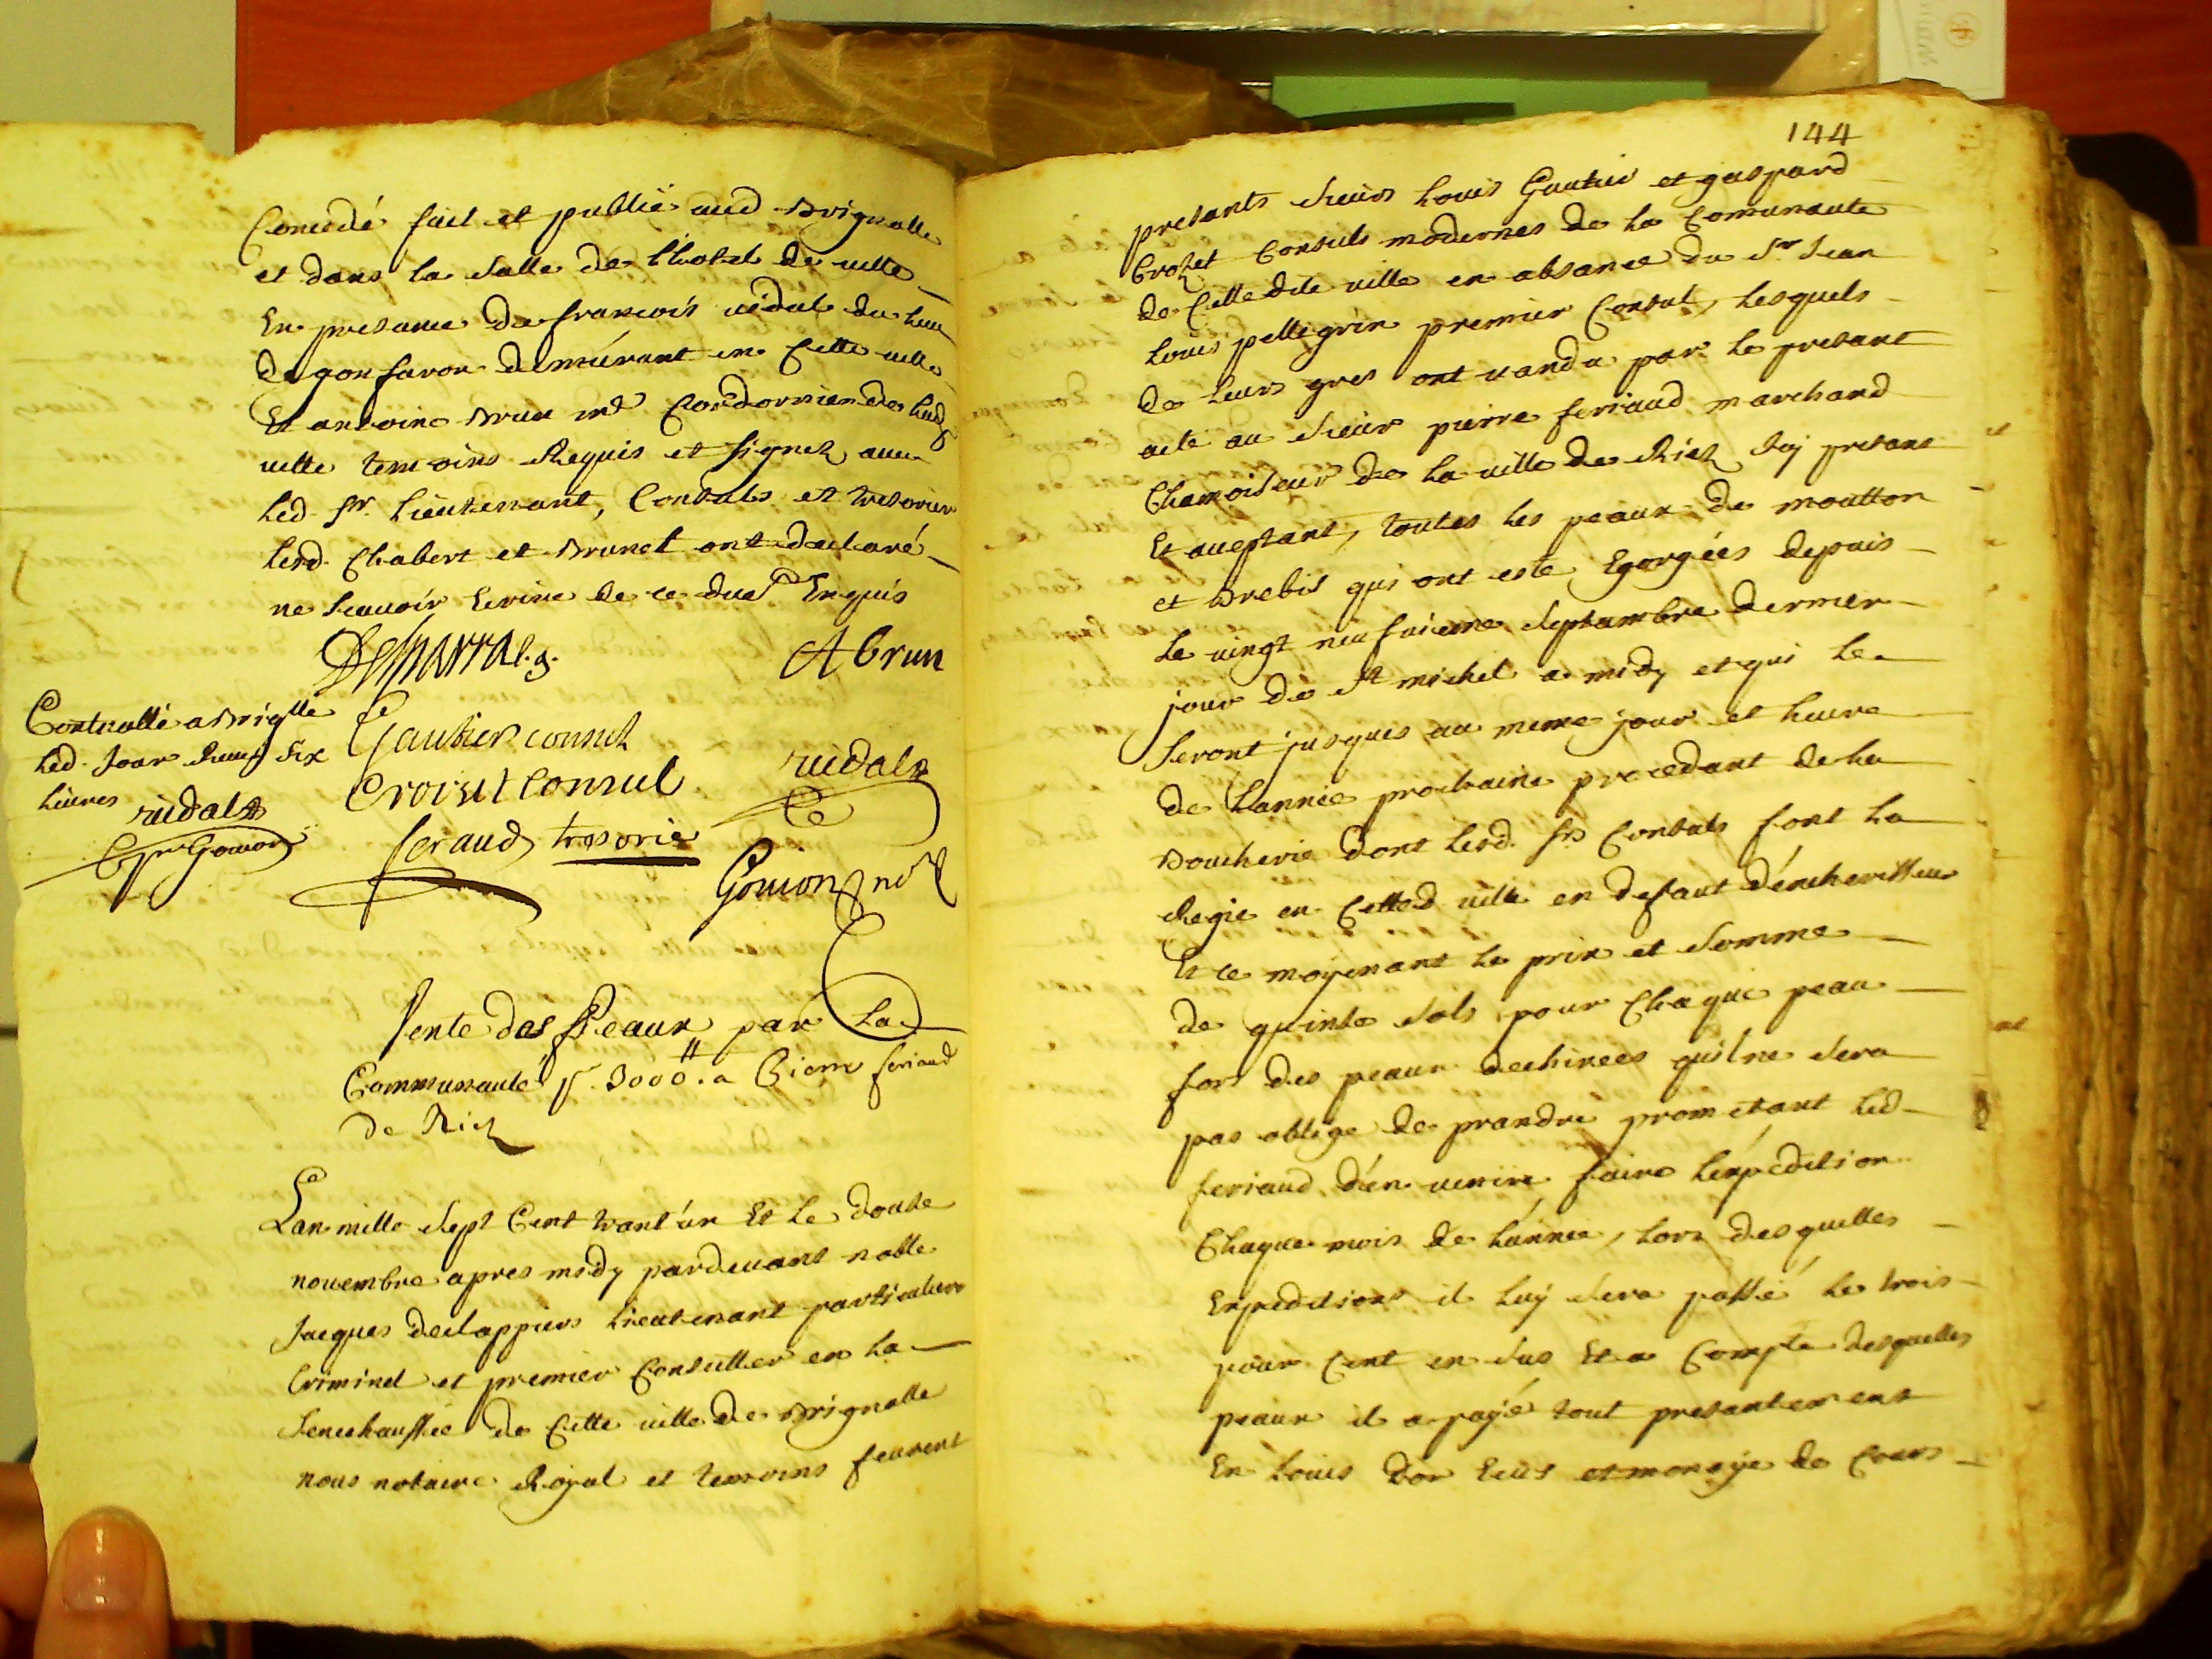 Concedé fait et publié aud Brignolle
et dans la salle de l'hotel de ville
En presance de francois vidal du lieu
de gonfaron demeurant en cette ville
Et antoine Brun md Cordonnier de lad
ville temoins Requis et signez avec
led. sr. Lieutenant, Consuls et tresorier
lesd. Chabert et Brunet ont declaré
ne scavoir Ecrire de ce due Enquis
A Brun
Gautier consul
Croizet Consul
vidal
feraud tresorie
Goujon nore
Controllé a Briglle
led. Jour Reçu six
livres vidal
Vente des Peaux par la
Communauté p. 3000 ll. a Pierre feriaud
de Riez
Lan mille sept Cent trant'un Et le douse
novembre apres midy pardevant noble
Jacques declappiers lieutenant particulier
Criminel et premier Conseiller en la
senechaussée de Cette ville de Brignolle
nous notaire Royal et temoins feurent
144
presants sieurs Louis Gautier et gaspard
Crozet Consuls modernes de la Comunauté
de Cette dite ville en absance du Sr Jean
Louis pellegrin premier Consul, lesquels
de leurs gres ont vandu par le presant
acte au sieur pierre feriaud marchand
Chamoiseur de la ville de Riez Icy presant
Et aceptant, toutes les peaux de moutton
et Brebis qui ont esté Egorgées depuis
le vingt neufvieme Septambre dernier
jour de St michel a midy et qui le
seront jusques au meme jour et heure
de Lannée prochaine procedant de la
Boucherie dont lesd. srs Consuls font la
Regie en Cetted ville en defaut d'encherisseur
Et ce moyenant le prix et somme
de quinse sols pour Chaque peau
fors des peaux dechirees quil ne sera
pas obligé de prandre prometant led
feriaud d'en venir faire lexpedition
Chaque mois de lánnée, lors desquelles
Expeditions il luy sera passé le trois
pour Cent en sus Et a Compte desquelles
peaux il a payé tout presantement
En Louis Dor Ecus et monoye de Cours